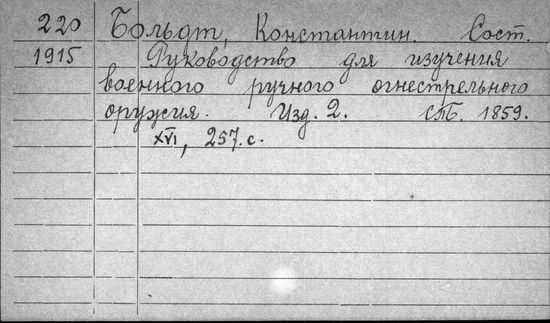 220 Больдт, Константин. Сост.
1915 Руководство для изучения
военного ручного огнестрельного
оружия. Изд. 2. СПБ. 1859.
XVI, 257. с.